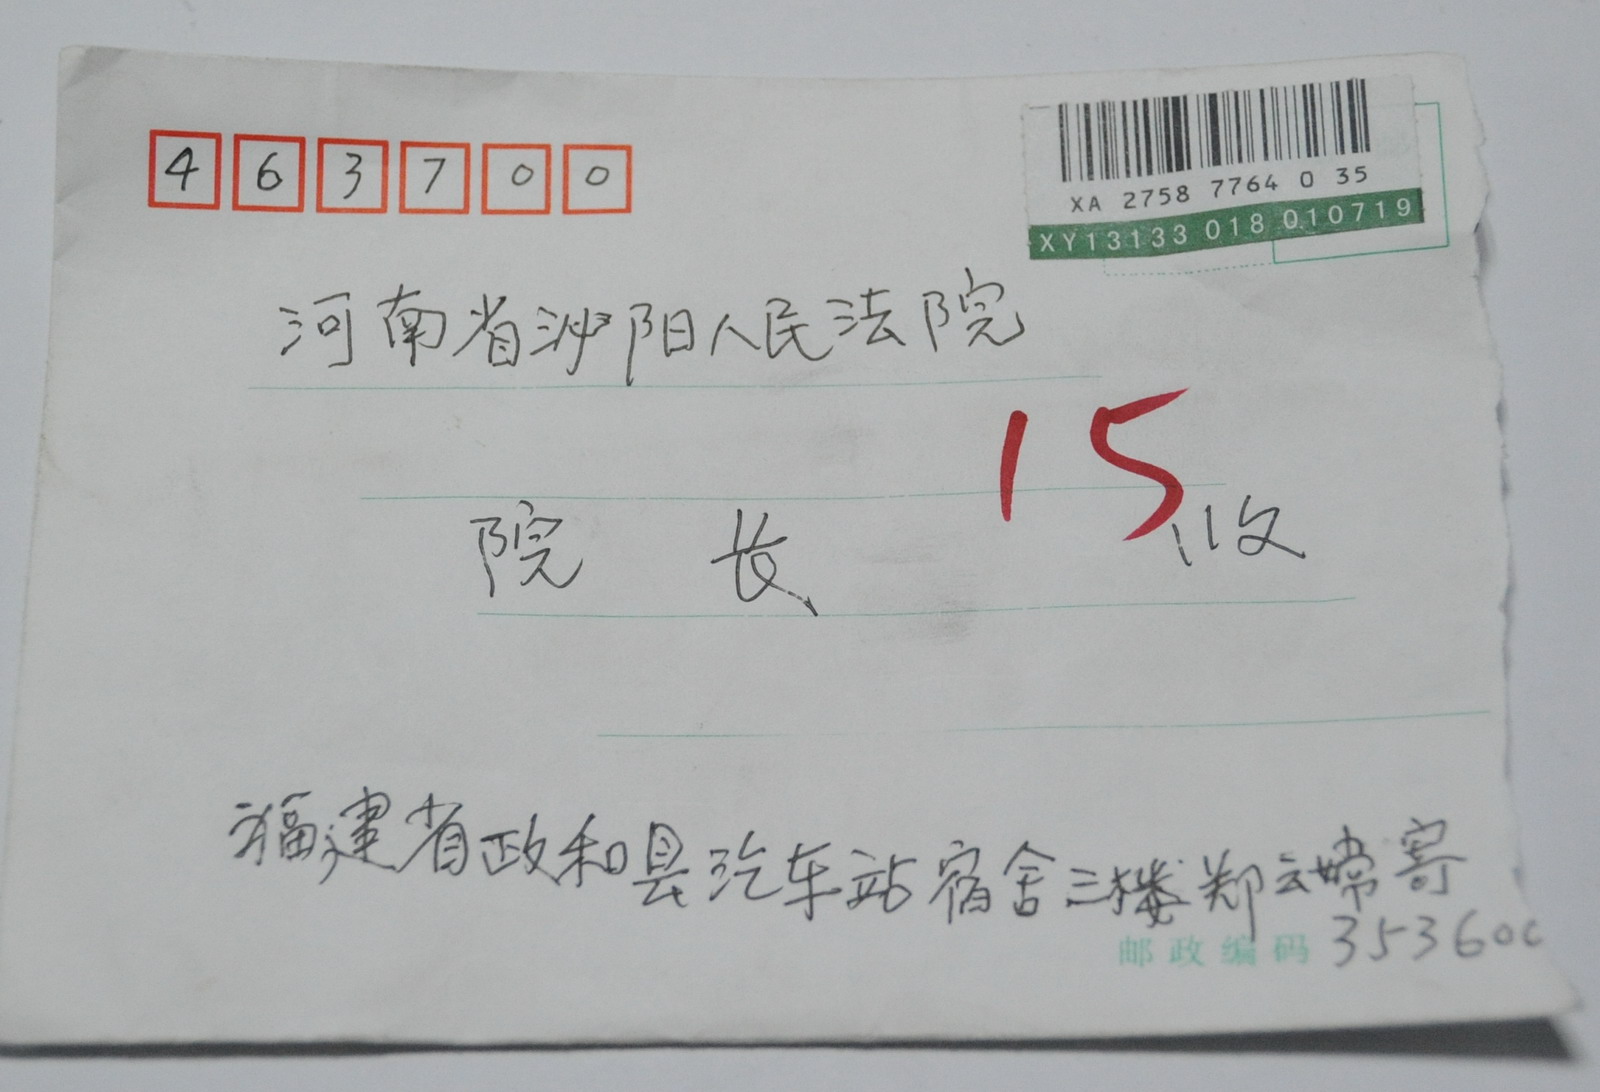 463700
XA 2758 7764 0 35
XY13133 018 010719
河南省泌阳人民法院
15
院 长 收
福建省政和县汽车站宿舍三楼郑云嫦寄
邮政编码 353600